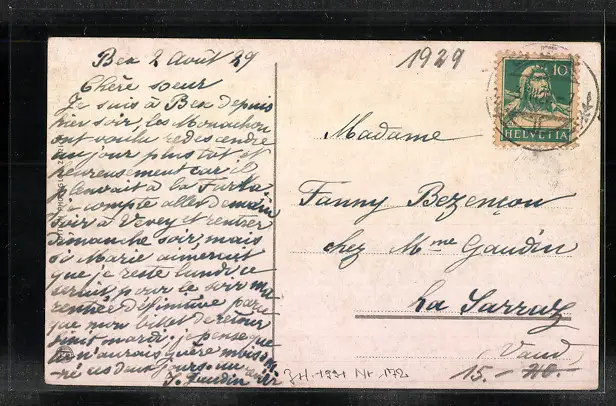 Bex 2 Août 29
Chère soeur
Je suis à Bex depuis
hier soir, les
ont voulu redescendre
un jour plus tôt et
heureusement car il
pleuvait à la
je compte aller demain
soir à Vevey et rentrer
dimanche soir, mais
si Marie aimerait
que je reste lundi ce
serait pour le soir ma
rentrée définitive parce
que mon billet de retour
finit mardi, je pense que
tu n'aurais guère
ces deux jours.
1929
10
HELVETIA
Madame
Fanny Bezençon
chez Mme Gaudin
La Sarraz
Vaud
15.- 40.-